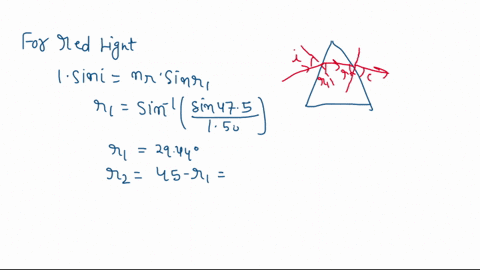 For Red Light
1.sini = nr.sinr₁
r₁ = Sin⁻¹(sin47.5/1.50)
r₁ = 29.44°
r₂ = 45-r₁ =
i
r₁
r₂
e